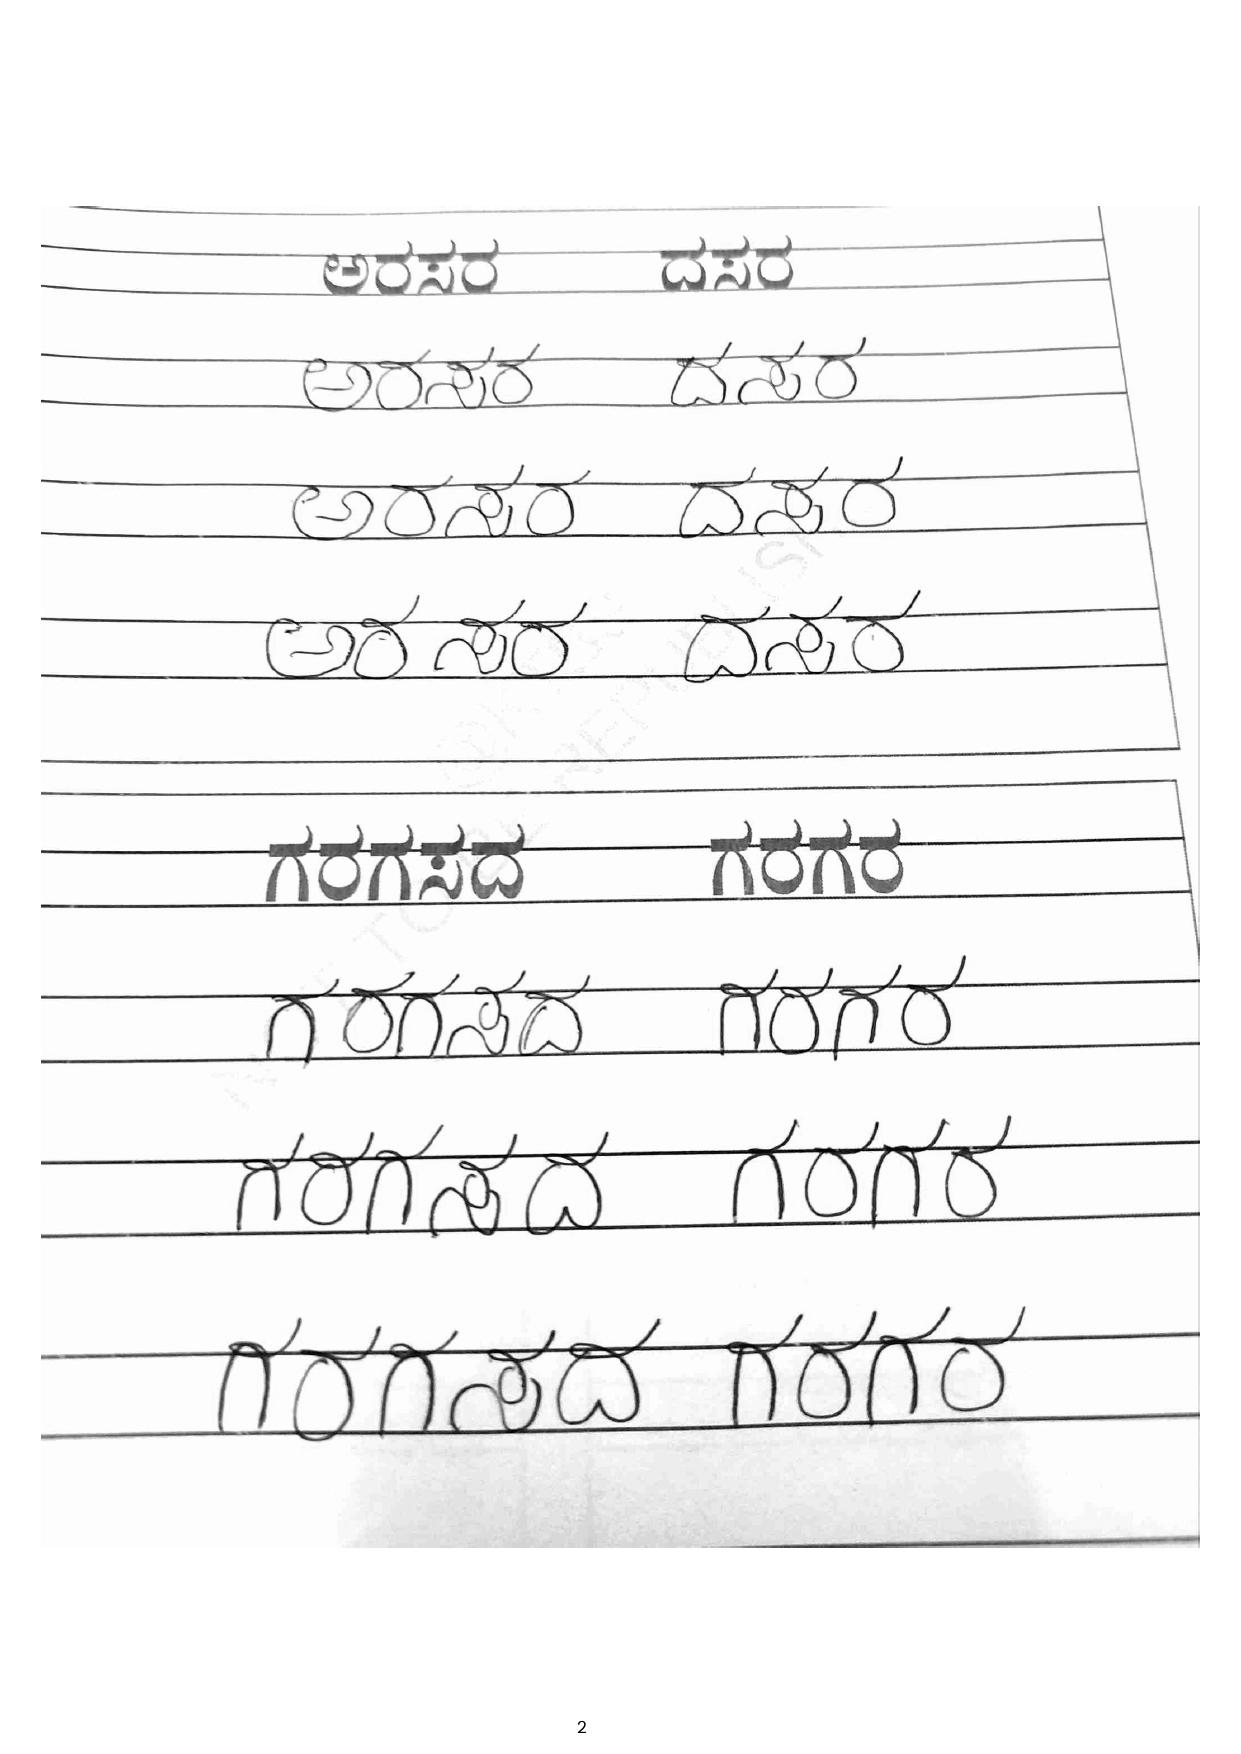 ಅರಸರ ದಸರ
ಅರಸರ ದಸರ
ಅರಸರ ದಸರ
ಅರಸರ ದಸರ
ಗರಗಸದ ಗರಗರ
ಗರಗಸದ ಗರಗರ
ಗರಗಸದ ಗರಗರ
ಗರಗಸದ ಗರಗರ
2